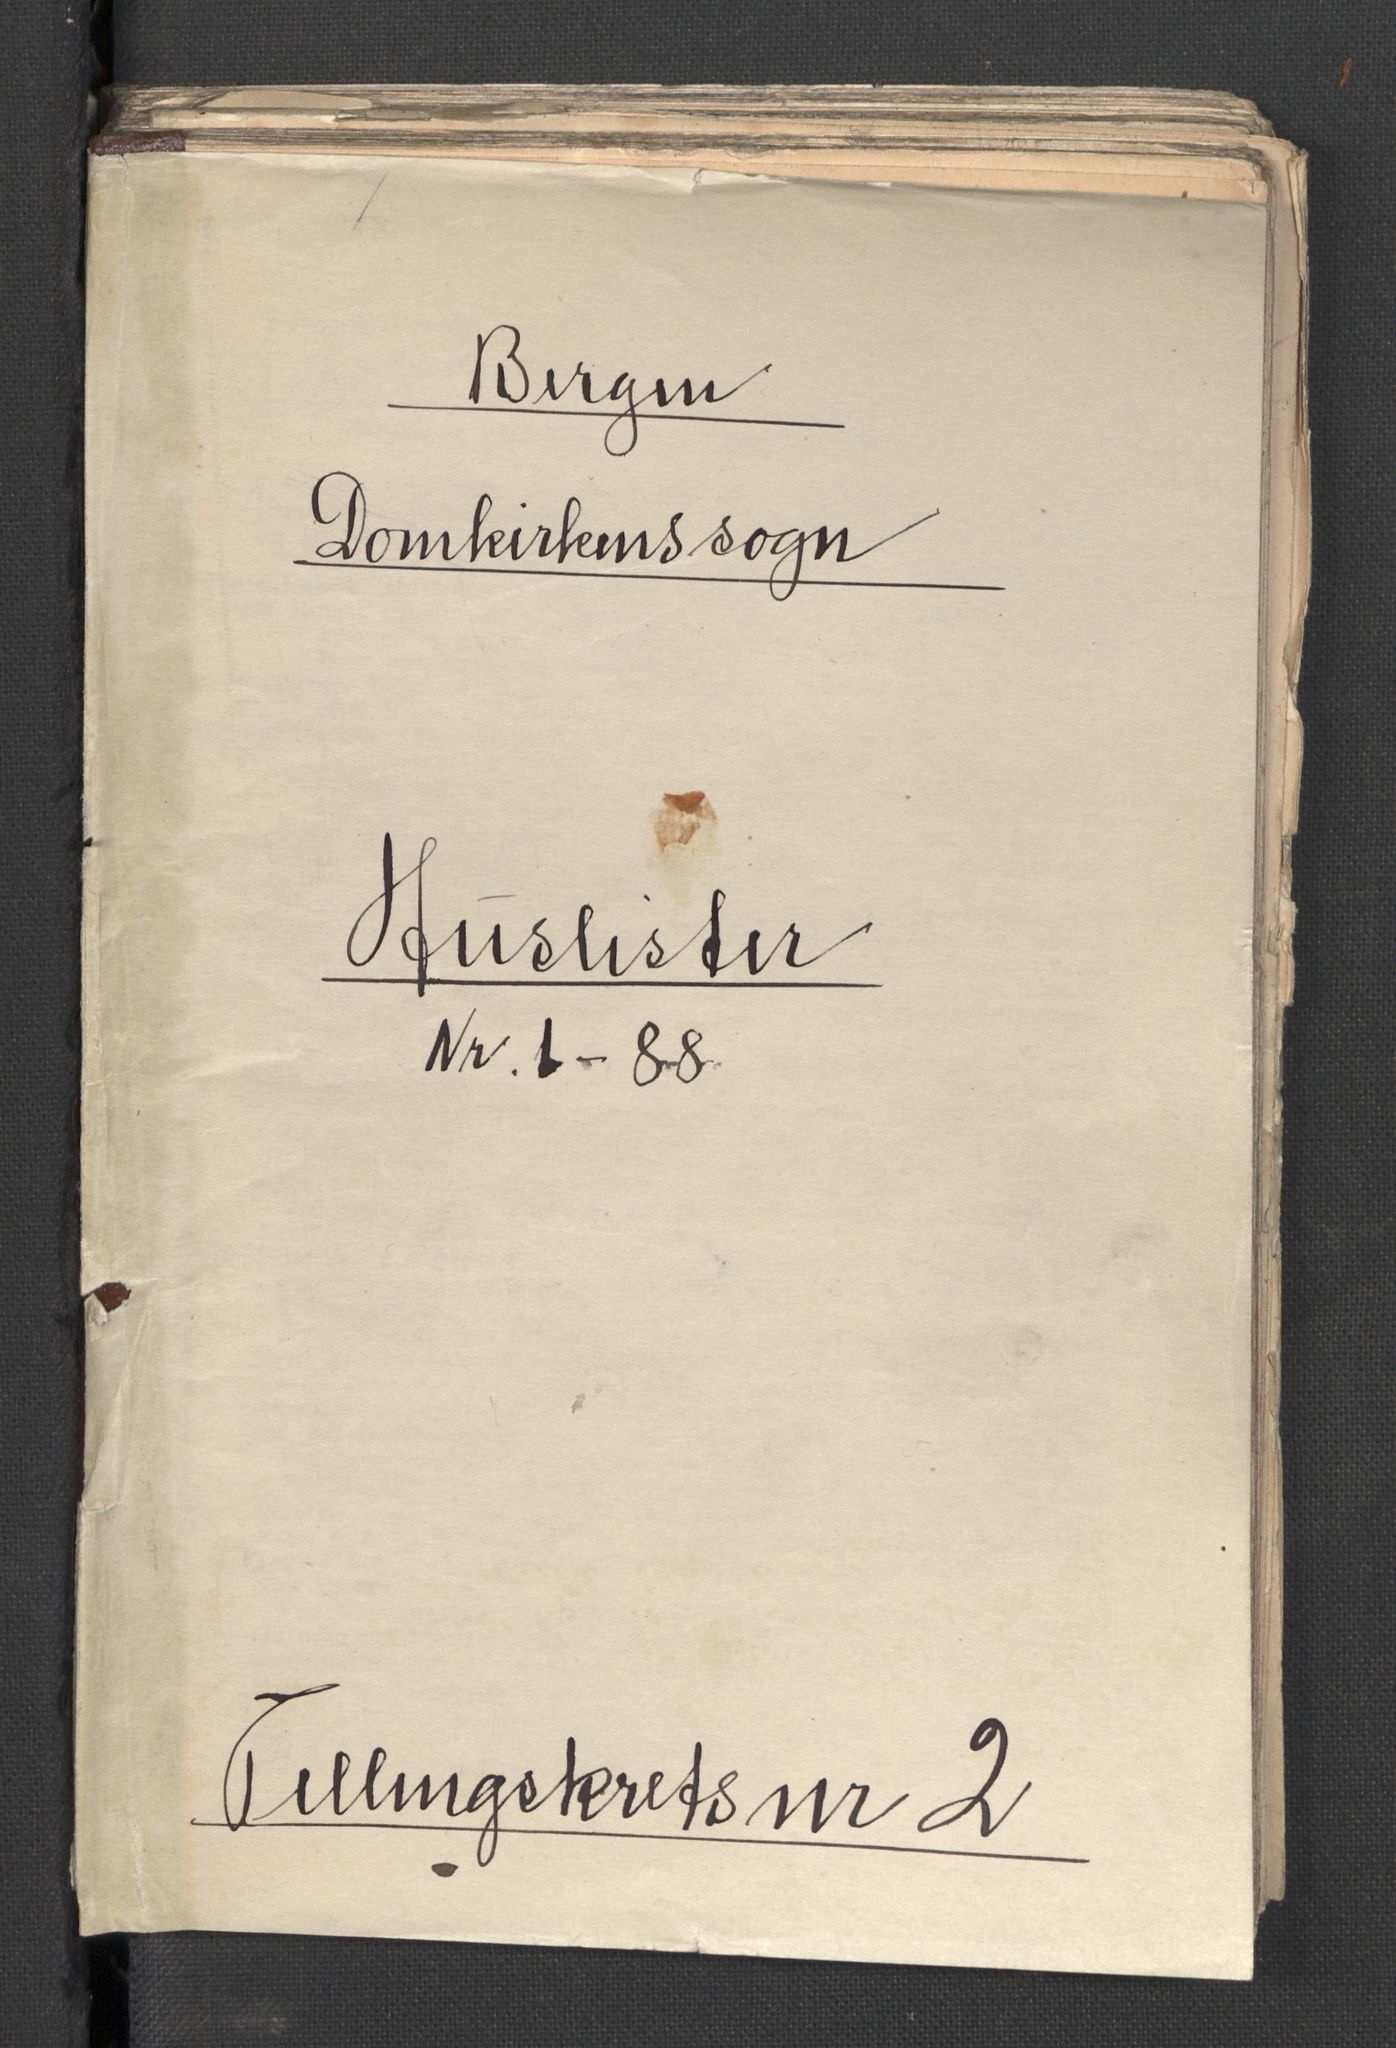 Bergen
Domkirkens sogn
Huslister
Nr. 1 - 88
Tellingskrets nr 2